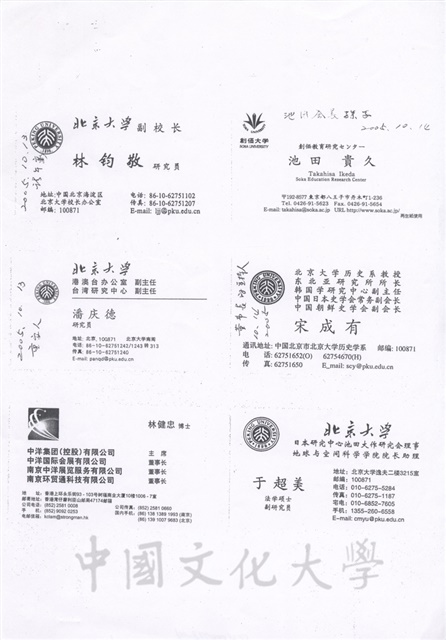 北京大学 副校长
林钧敬 研究员
地址:中国北京海淀区
北京大学校长办公室
邮编: 100871
电话: 86-10-62751102
传真: 86-10-62751207
E-mail: ljj@pku.edu.cn
2005.10.13
2005.10.14
創価大学
SOKA UNIVERSITY
創価教育研究センター
池田 貴久
Takahisa Ikeda
Soka Education Research Center
〒192-8577 東京都八王子市丹木町1-236
Tel. 0426-91-5623 Fax. 0426-91-5654
E-mail: takahisa@soka.ac.jp URL http://www.soka.ac.jp/
再生紙使用
北京大学
港澳台办公室 副主任
台湾研究中心 副主任
潘庆德
研究员
地址: 北京, 100871 北京大学南阁
电话: 86-10-62751242/1243 转 313
传真: 86-10-62751240
E-mail: panqd@pku.edu.cn
2005.10.13
北京大学历史系教授
东北亚研究所所长
韩国学研究中心副主任
中国日本史学会常务副会长
中国朝鲜史学会副会长
宋成有
通讯地址: 中国北京市北京大学历史学系 邮编: 100871
电 话: 62751652(O) 62754670(H)
传 真: 62751650 E_mail: scy@pku.edu.cn
林健忠 博士
中洋集团(控股)有限公司 主席
中洋国际会展有限公司 董事长
南京中洋展览服务有限公司 董事长
南京环贸通科技有限公司 董事长
公司电话: (852) 2581 0008
公司传真: (852) 2581 0660
手机: (852) 9092 0253
国内手机: (86) 138 1389 1993 (南京)
(86) 139 1007 9683 (北京)
电邮: kclam@strongman.hk
北京大学
日本研究中心池田大作研究会理事
地球与空间科学学院院长助理
于超美
法学硕士
副研究员
地址: 北京大学逸夫二楼3215室
邮编: 100871
电话: 010-6275-5284
传真: 010-6275-1187
宅电: 010-6852-7605
手机: 1355-260-6558
E-mail: cmyu@pku.edu.cn
中國文化大學